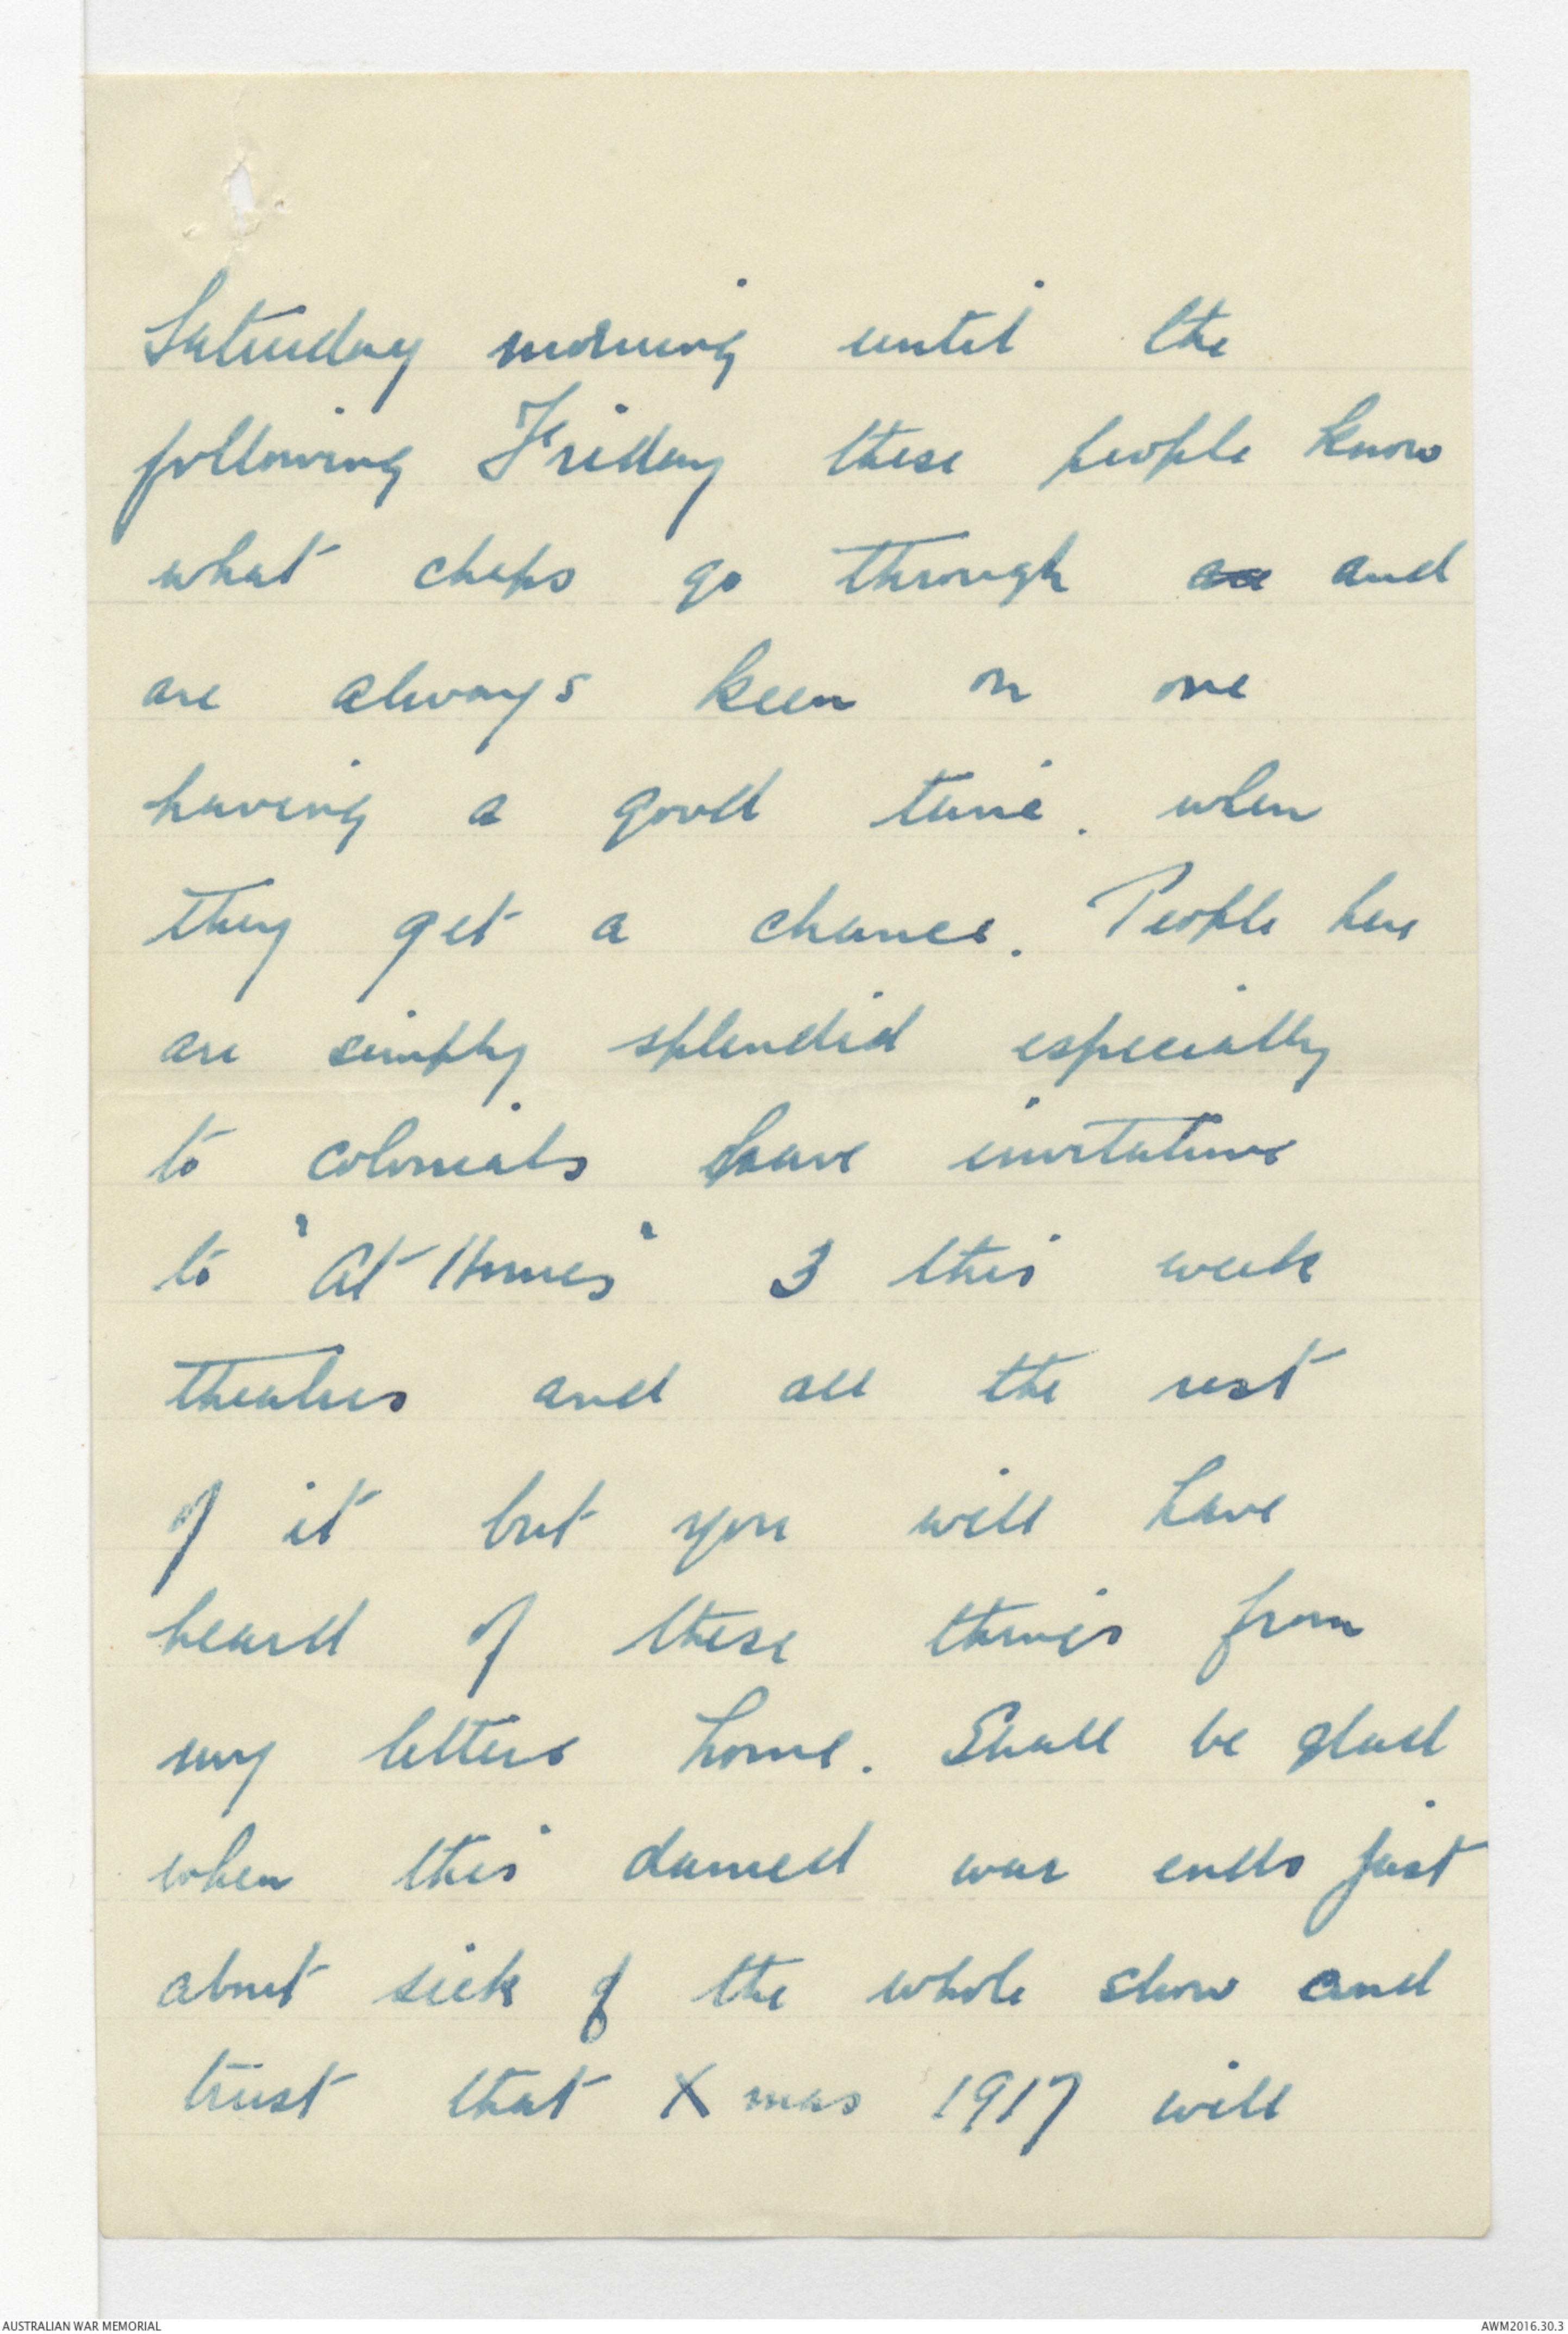 Saturday morning until the
following Friday these people know
what chaps go through and
are always keen on one
having a good time. when
they get a chance. People here
are simply splendid especially
to colonials have invitations
to "At Homes" 3 this week
theatres and all the rest
of it but you will have
heard of these things from
my letters home. Shall be glad
when this damed war ends just
about sick of the whole show and
trust that Xmas 1917 will
AUSTRALIAN WAR MEMORIAL
AWM2016.30.3